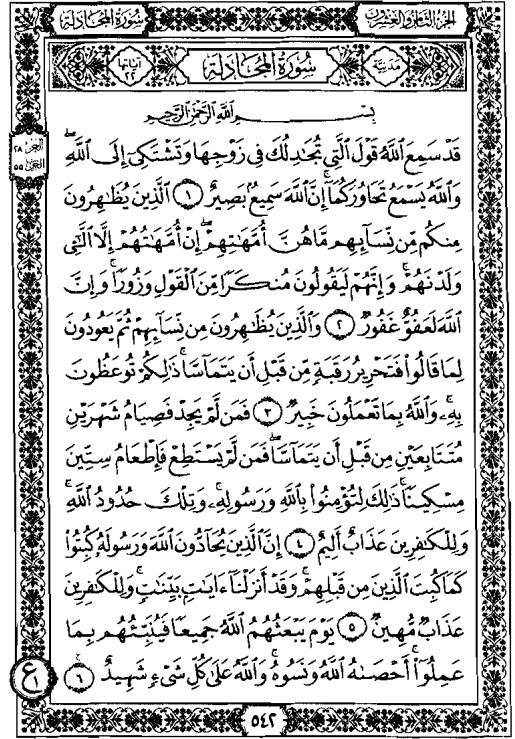 الجزء الثامن والعشرون
سورة المجادلة
مدنية
سُورَةُ المُجَادلة
آياتها ٢٢
بِسْمِ اللَّهِ الرَّحْمَٰنِ الرَّحِيمِ
قَدْ سَمِعَ اللَّهُ قَوْلَ الَّتِي تُجَادِلُكَ فِي زَوْجِهَا وَتَشْتَكِي إِلَى اللَّهِ
وَاللَّهُ يَسْمَعُ تَحَاوُرَكُمَا إِنَّ اللَّهَ سَمِيعٌ بَصِيرٌ ١ الَّذِينَ يُظَاهِرُونَ
مِنكُم مِّن نِّسَائِهِم مَّا هُنَّ أُمَّهَاتِهِمْ إِنْ أُمَّهَاتُهُمْ إِلَّا اللَّائِي
وَلَدْنَهُمْ وَإِنَّهُمْ لَيَقُولُونَ مُنكَرًا مِّنَ الْقَوْلِ وَزُورًا وَإِنَّ
اللَّهَ لَعَفُوٌّ غَفُورٌ ٢ وَالَّذِينَ يُظَاهِرُونَ مِن نِّسَائِهِمْ ثُمَّ يَعُودُونَ
لِمَا قَالُوا فَتَحْرِيرُ رَقَبَةٍ مِّن قَبْلِ أَن يَتَمَاسَّا ذَٰلِكُمْ تُوعَظُونَ
بِهِ وَاللَّهُ بِمَا تَعْمَلُونَ خَبِيرٌ ٣ فَمَن لَّمْ يَجِدْ فَصِيَامُ شَهْرَيْنِ
مُتَتَابِعَيْنِ مِن قَبْلِ أَن يَتَمَاسَّا فَمَن لَّمْ يَسْتَطِعْ فَإِطْعَامُ سِتِّينَ
مِسْكِينًا ذَٰلِكَ لِتُؤْمِنُوا بِاللَّهِ وَرَسُولِهِ وَتِلْكَ حُدُودُ اللَّهِ
وَلِلْكَافِرِينَ عَذَابٌ أَلِيمٌ ٤ إِنَّ الَّذِينَ يُحَادُّونَ اللَّهَ وَرَسُولَهُ كُبِتُوا
كَمَا كُبِتَ الَّذِينَ مِن قَبْلِهِمْ وَقَدْ أَنزَلْنَا آيَاتٍ بَيِّنَاتٍ وَلِلْكَافِرِينَ
عَذَابٌ مُّهِينٌ ٥ يَوْمَ يَبْعَثُهُمُ اللَّهُ جَمِيعًا فَيُنَبِّئُهُم بِمَا
عَمِلُوا أَحْصَاهُ اللَّهُ وَنَسُوهُ وَاللَّهُ عَلَىٰ كُلِّ شَيْءٍ شَهِيدٌ ٦
الجزء ٢٨
الحزب ٥٥
ع ١
٥٤٢